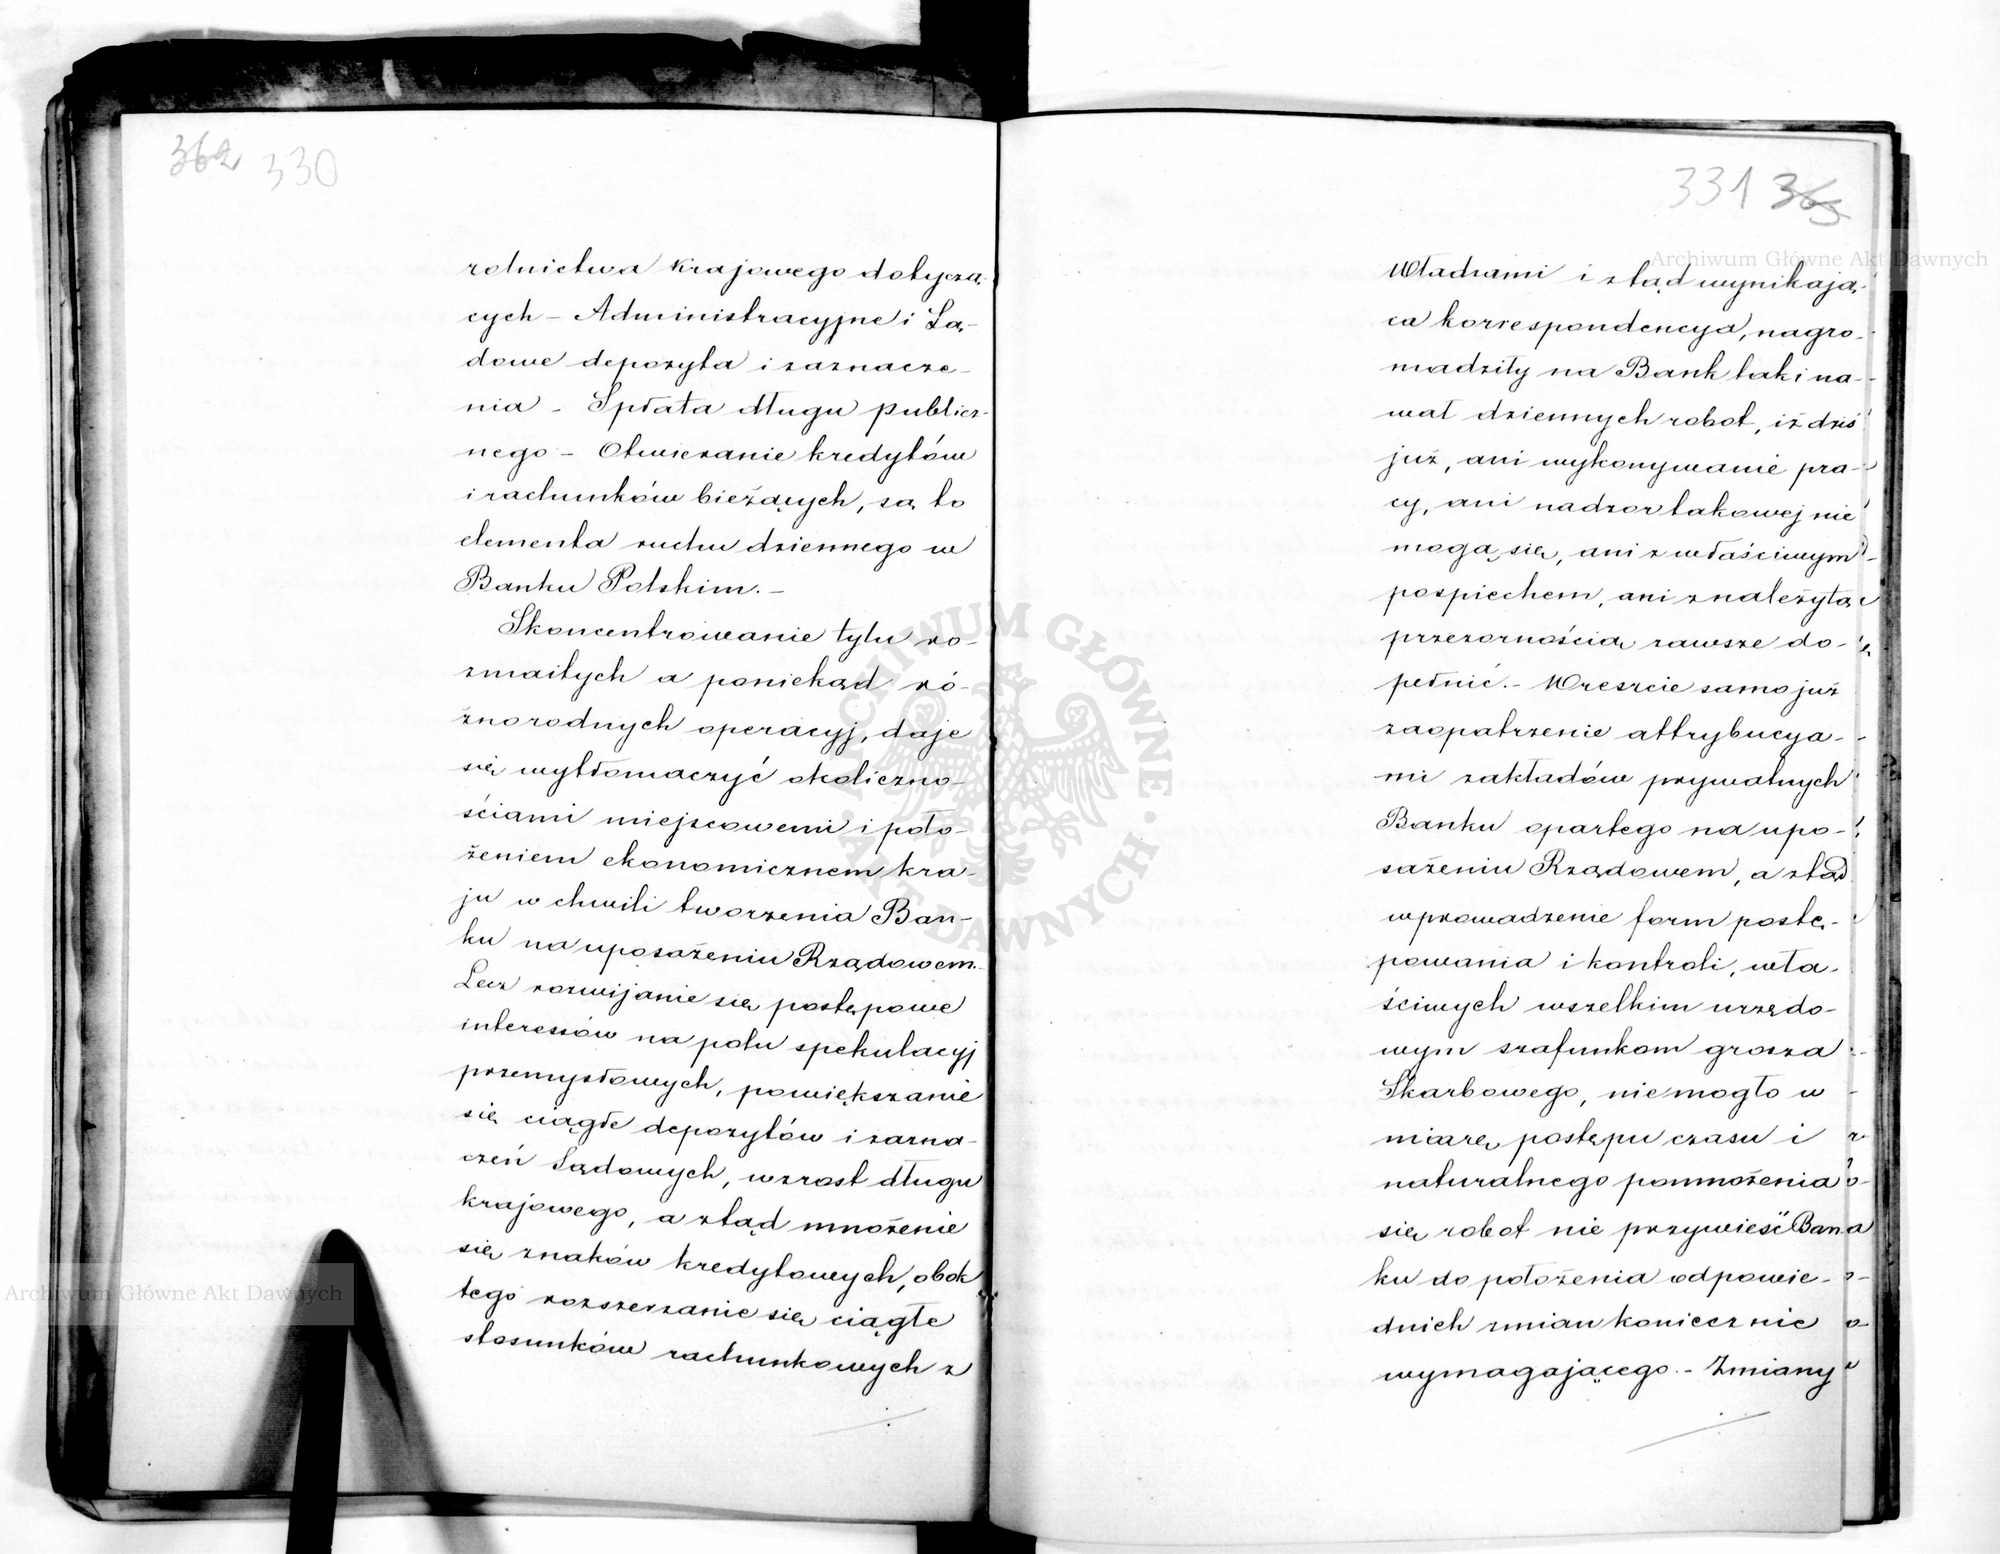 362 330
rolnictwa krajowego dotyczą-
cych – Administracyjne i Są-
dowe depozyta i zaznacze-
nia – Spłata długu publicz-
nego – Otwieranie kredytów
i rachunków bieżących, są to
elementa ruchu dziennego w
Banku Polskim. –
Skoncentrowanie tylu ro-
zmaitych a poniekąd ró-
żnorodnych operacyj, daje
się wytłomaczyć okoliczno-
ściami miejscowemi i poło-
żeniem ekonomicznem kra-
ju w chwili tworzenia Ban-
ku na uposażeniu Rządowem.
Lecz rozwijanie się postępowe
interessów na polu spekulacyj
przemysłowych, powiększanie
się ciągłe depozytów i zazna-
czeń Sądowych, wzrost długu
krajowego, a ztąd mnożenie
się znaków kredytowych, obok
tego rozszerzanie się ciągłe
stosunków rachunkowych z
331 363
Władzami i ztąd wynikają-
ca korrespondencya, nagro-
madziły na Bank taki na-
wał dziennych robot, iż dziś
już, ani wykonywanie pra-
cy, ani nadzor takowej nie
mogą się, ani z właściwym
pospiechem, ani z należytą
przezornością zawsze do-
pełnić. – Wreszcie samo już
zaopatrzenie attrybucya-
mi zakładów prywatnych
Banku opartego na upo-
sażeniu Rządowem, a ztąd
wprowadzenie form postę-
powania i kontroli, wła-
ściwych wszelkim urzędo-
wym szafunkom grosza
Skarbowego, nie mogło w
miarę postępu czasu i
naturalnego pomnożenia
się robot nie przywieść Ban-
ku do położenia odpowie-
dnich zmian koniecznie
wymagającego. – Zmiany
Archiwum Główne Akt Dawnych
Archiwum Główne Akt Dawnych
ARCHIWUM GŁÓWNE AKT DAWNYCH